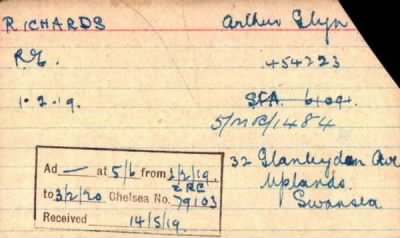 RICHARDS Arthur Glyn
R.E. 454223
1.2.19. SFA. 6109.
5/MR/1484
32 Glanbrydan Ave
Uplands.
Swansea
Ad — at 5/6 from 1/2/19.
2 RC
to 3/2/20 Chelsea No. 79103
Received 14/5/19.